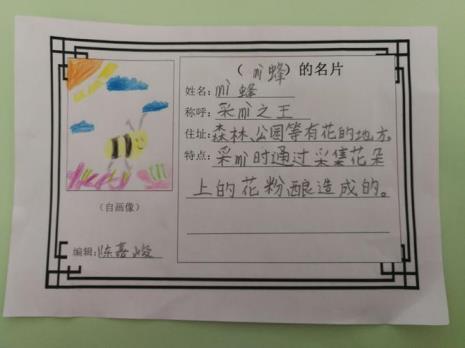 （mì蜂）的名片
姓名：mì蜂
称呼：采mì之王
住址：森林、公园等有花的地方
特点：采mì时通过采集花朵
上的花粉酿造成的。
（自画像）
编辑：陈嘉峻